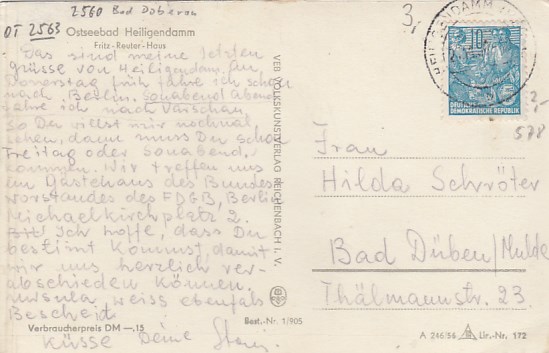 2560 Bad Doberan
OT 2563
3,-
Ostseebad Heiligendamm
Fritz-Reuter-Haus
Das sind meine letzten
Grüsse von Heiligendamm. Am
Donerstag früh fahre ich schon
nach Berlin. Sonabend Abend
fahre ich nach Varschau
So Du willst mir nochmal
sehen, dann muss Du schon
Freitag oder Sonabend.
kommen. Wir treffen uns
im Gästehaus des Bundes
vorstandes des FDGB, Berlin
Michaelkirchplatz 2.
Bitt! Ich hoffe, dass Du
bestimt kommst, damit
wir uns herzlich ver-
abschieden können.
Ursula, weiss ebenfals
Bescheid
Küsse Deine
Verbraucherpreis DM —.15
Best.-Nr. 1/905
VEB VOLKSKUNSTVERLAG REICHENBACH i. V.
HEILIGENDAMM
10
DEUTSCHE
DEMOKRATISCHE REPUBLIK
578
Frau
Hilda Schröter
Bad Düben/Mulde
Thälmannstr. 23
A 246/56 Liz.-Nr. 172